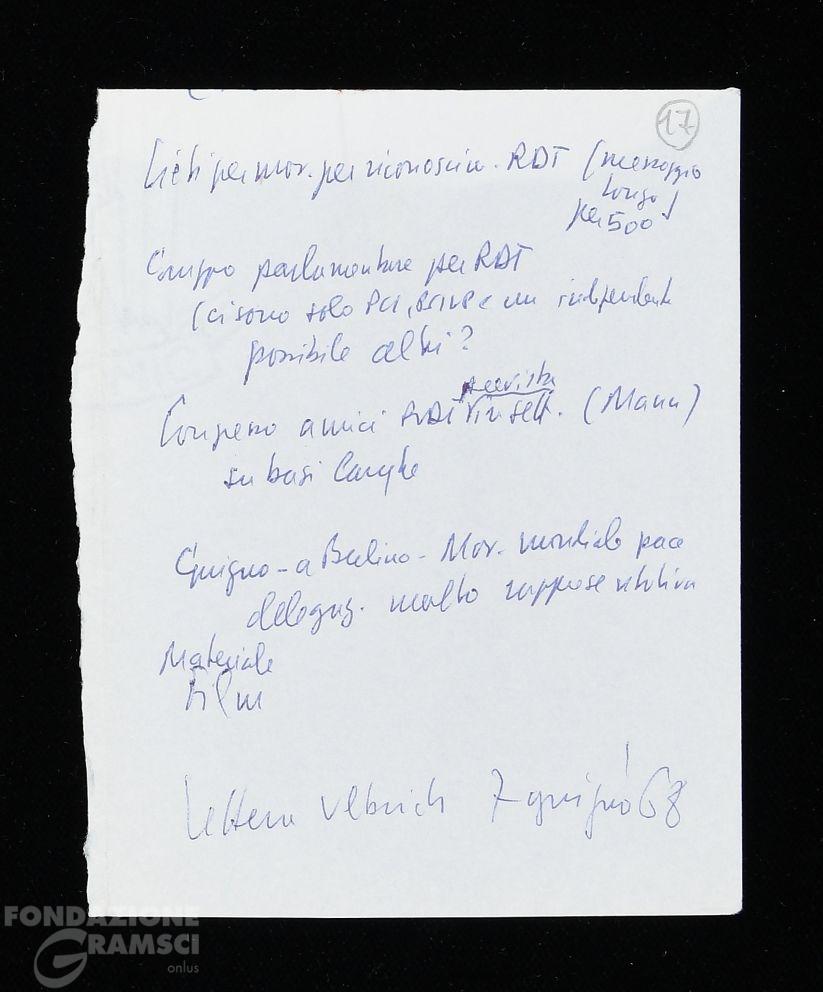 17
Lieti per mov. per riconoscim. RDT (messaggio
Longo
per 500)
Gruppo parlamentare per RDT
(ci sono solo PCI, e un indipendente
possibile altri?
Congresso amici RDT in sett. (Mann)
su basi
Giugno - a Berlino - Mov. mondiale pace
delegaz. molto rappresentativa
Materiale
Film
Lettera Ulbrich 7 giugno 68
FONDAZIONE
GRAMSCI
onlus